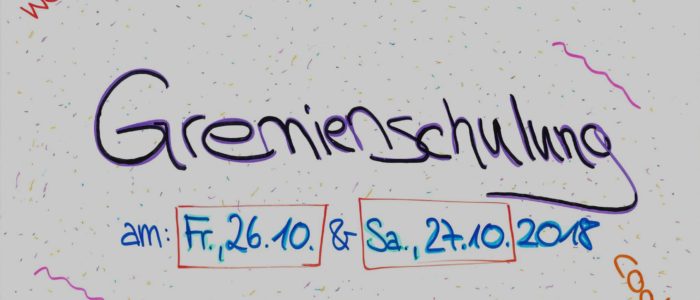 Gremienschulung
am: Fr., 26.10. & Sa., 27.10. 2018